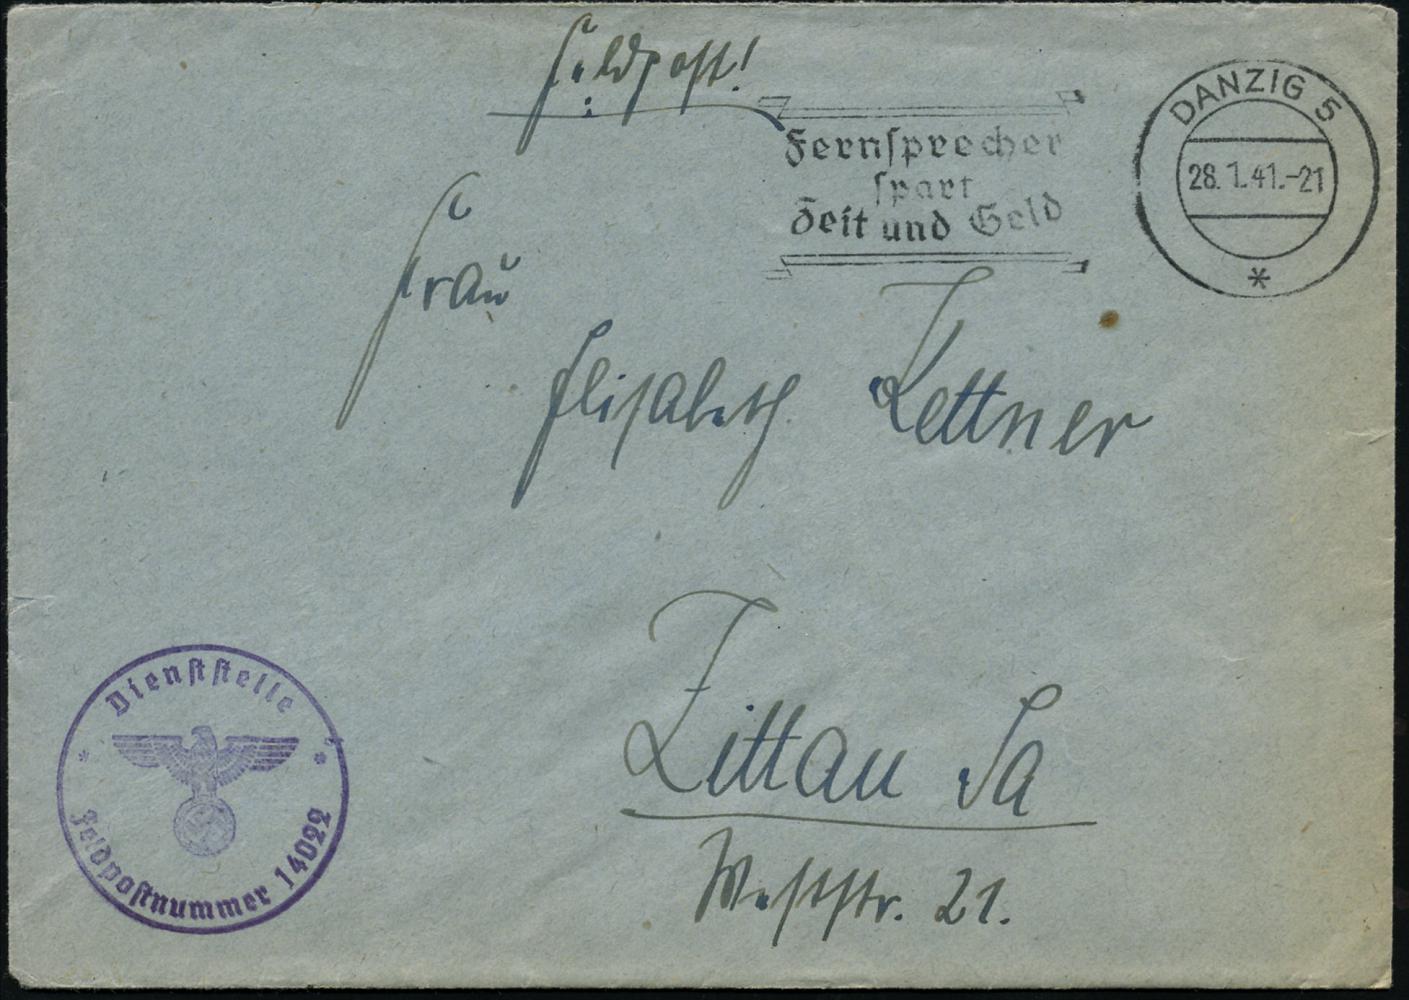 Feldpost!
Fernsprecher
spart
Zeit und Geld
DANZIG 5
28.1.41.-21
*
Frau
Elisabeth Lettner
Zittau Sa
Weststr. 21.
Dienststelle
* *
Feldpostnummer 14022